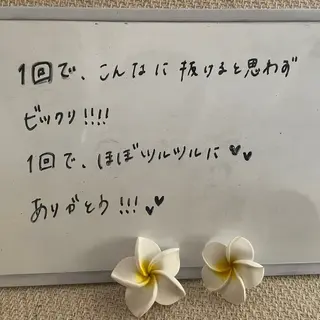 1回で、こんなに抜けると思わず
ビックリ!!!!
1回で、ほぼツルツルに♥♥
ありがとう!!!♥♥